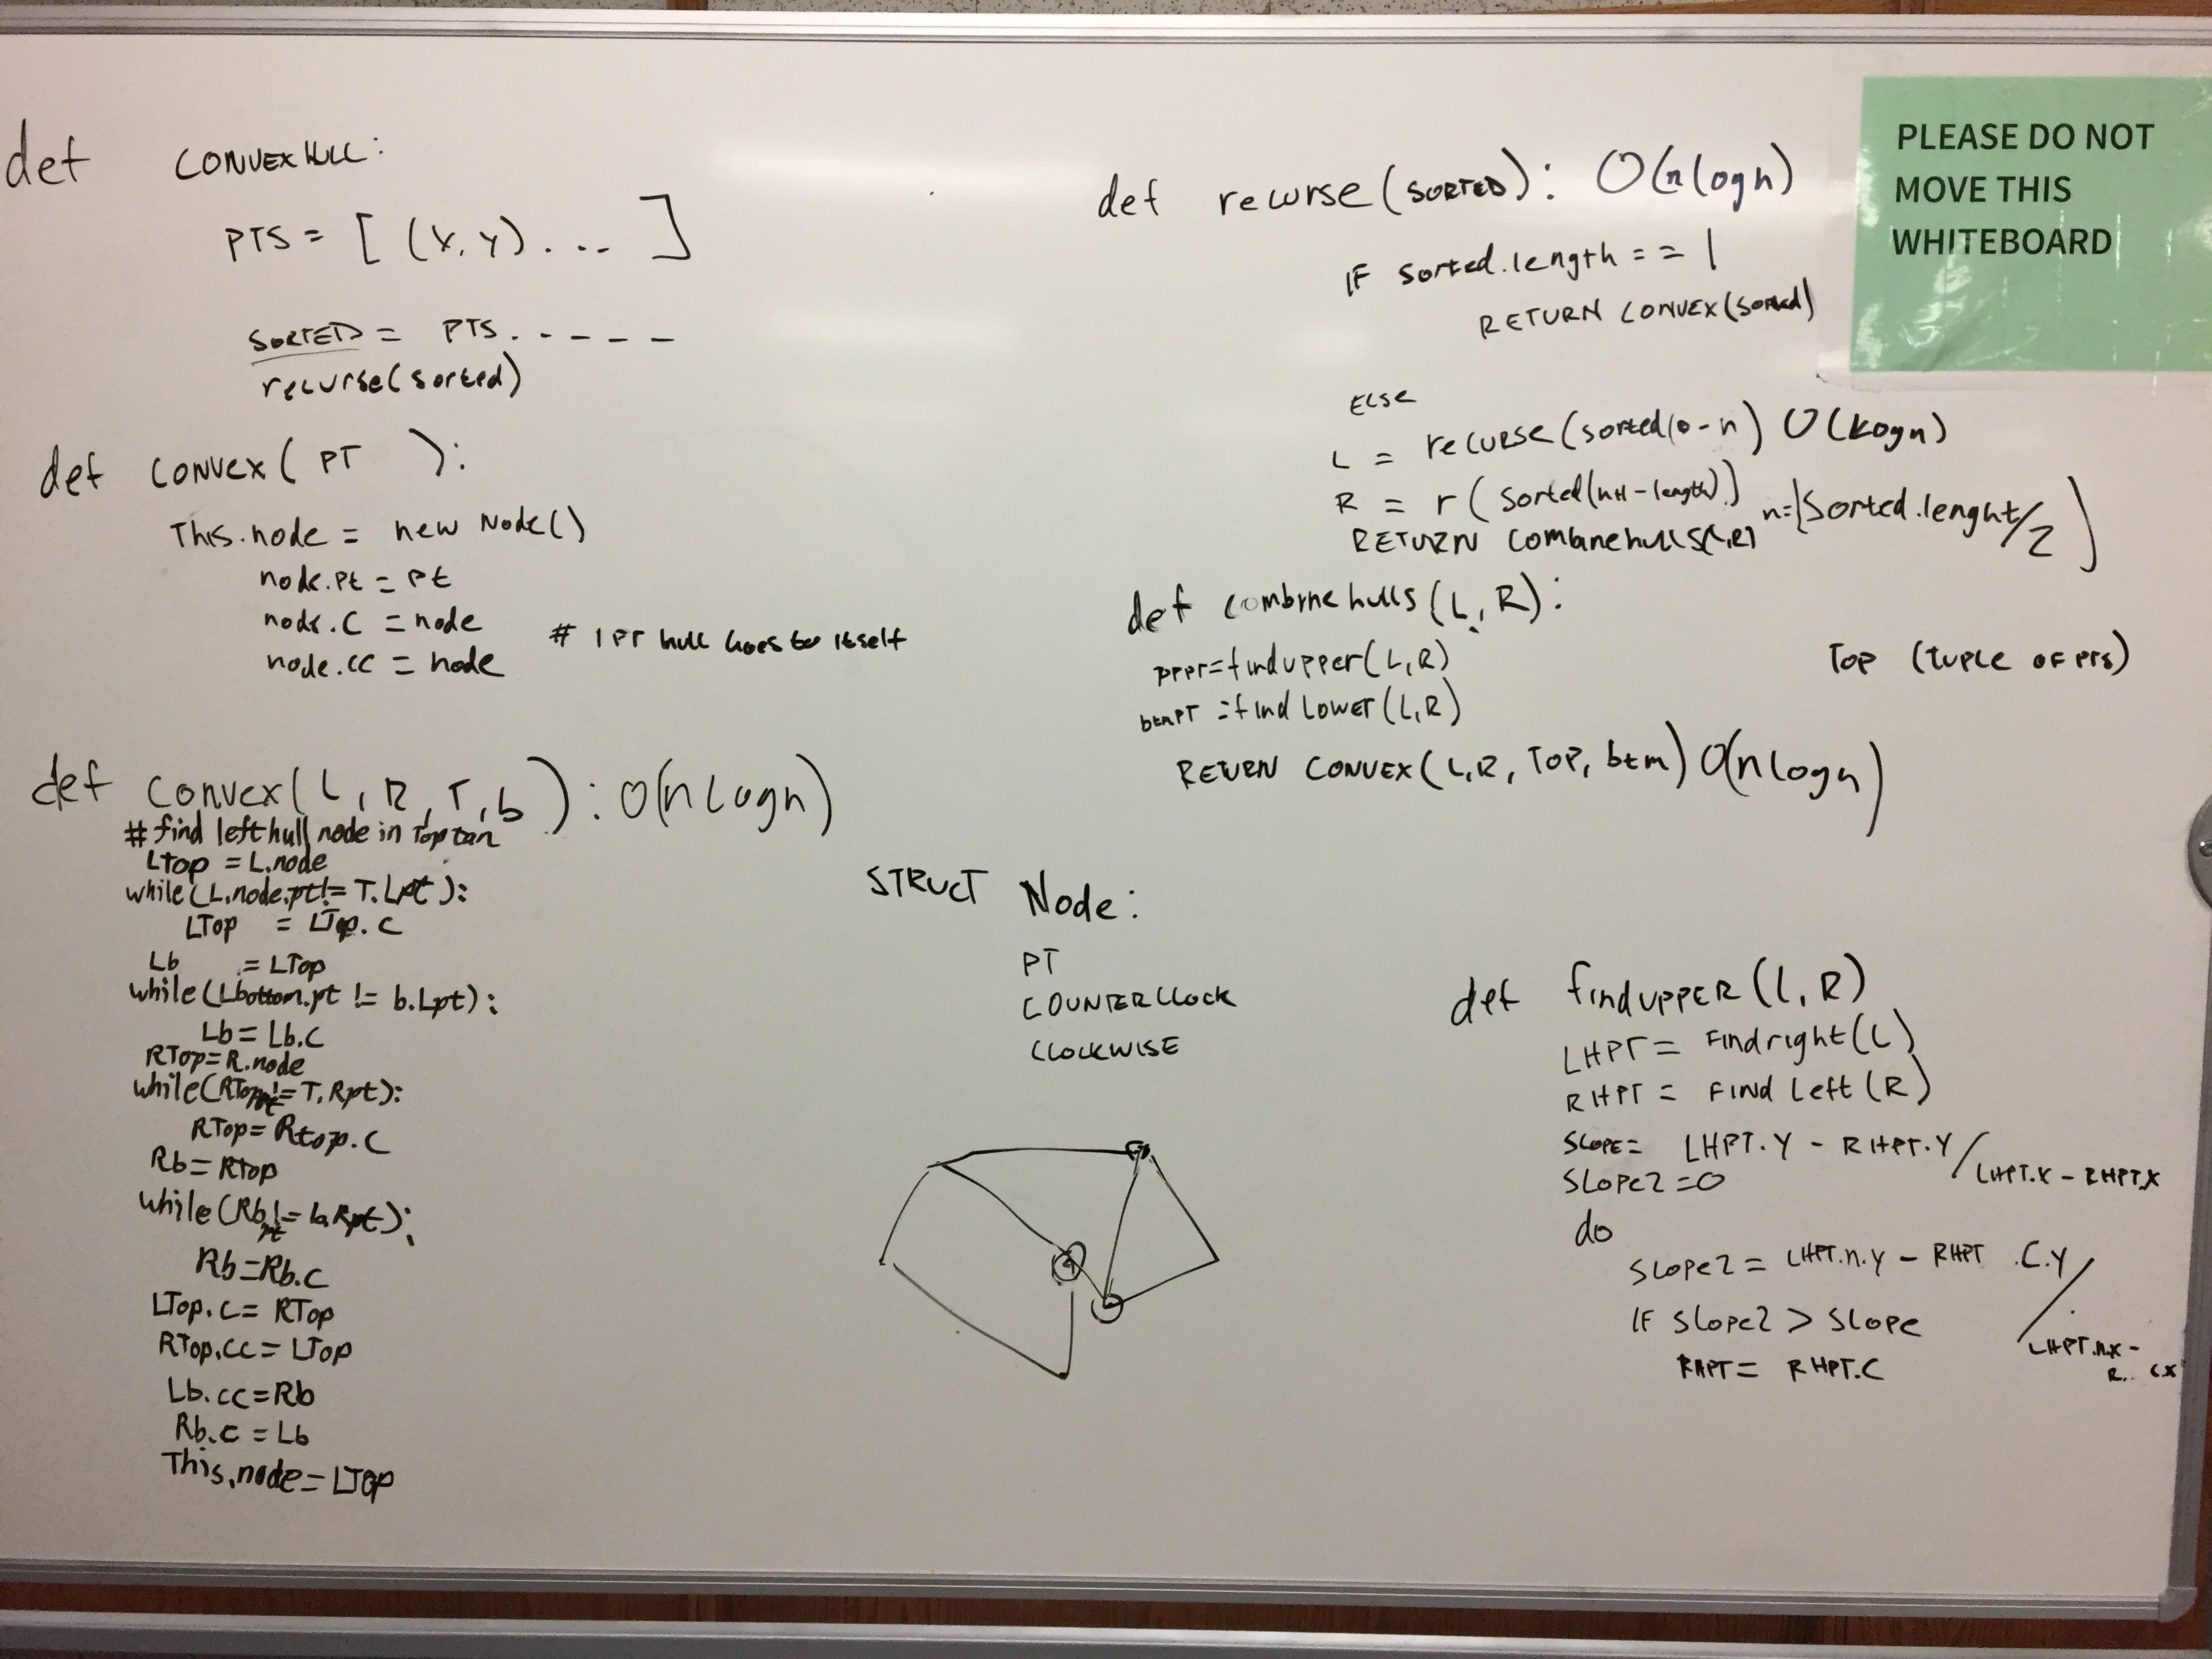 def CONVEXHULL:
PTS = [ (X, Y) . . . ]
SORTED = PTS. - - - - -
recurse(sorted)
def CONVEX( PT ):
This.node = new Node()
node.pt = pt
node.C = node
node.cc = node
# 1 PT hull Goes to itself
def Convex( L, R, T, b ): O(n logn)
# find left hull node in Top tan
LTop = L.node
while(L.node.pt != T.Lpt):
LTop = LTop.C
Lb = LTop
while(Lbottom.pt != b.Lpt):
Lb = Lb.C
RTop = R.node
while(RTop.pt != T.Rpt):
RTop = Rtop.C
Rb = RTop
while(Rb.pt != b.Rpt):
Rb = Rb.C
LTop.C = RTop
RTop.CC = LTop
Lb.CC = Rb
Rb.C = Lb
This.node = LTop
STRUCT Node:
PT
COUNTERCLOCK
CLOCKWISE
def recurse(SORTED): O(n logn)
IF sorted.length == 1
RETURN CONVEX(sorted)
ELSE
L = recurse(sorted(0 - n) O(logn)
R = r( sorted(n+1 - length))
n = [Sorted.lenght/2]
RETURN Combinehulls(L,R)
def combine hulls (L, R):
= findupper(L,R)
btmPT = find LOWER(L,R)
RETURN CONVEX(L,R, TOP, btm) O(n logn)
TOP (TUPLE OF PTS)
def findUPPER(L, R)
LHPT = Findright(L)
RHPT = FIND Left(R)
SLOPE = LHPT.Y - RHPT.Y / LHPT.X - RHPT.X
SLOPE2 = 0
do
SLOPE2 = LHPT.n.y - RHPT .C.Y / LHPT.n.x - R.. C.X
IF SLOPE2 > SLOPE
RHPT = RHPT.C
PLEASE DO NOT
MOVE THIS
WHITEBOARD